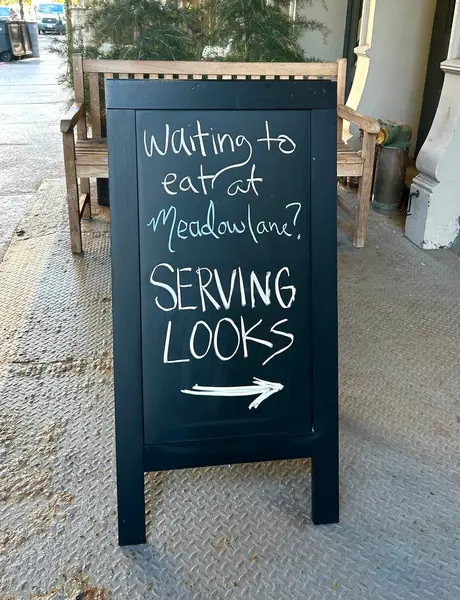 Waiting to
eat at
Meadowlane?
SERVING
LOOKS